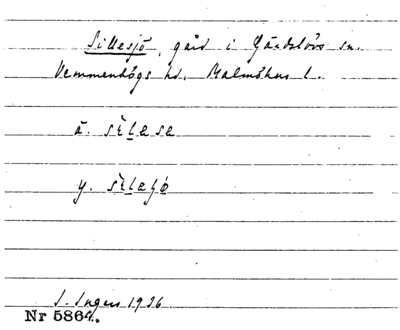 Sillesjö, gård i Gärdslövs sn.
Vemmenhögs hd, Malmöhus l.
ä. sìlasa
y. sìlaſö
S. Ingers 1926
Nr 5864.